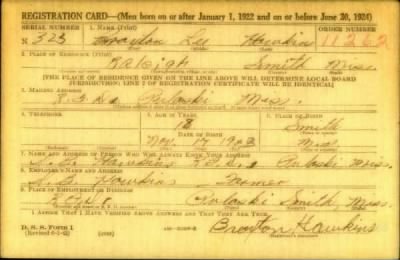 REGISTRATION CARD—(Men born on or after January 1, 1922 and on or before June 30, 1924)
SERIAL NUMBER 1. NAME (Print) ORDER NUMBER
N 323 Braxton Lee Hawkins 11362
2. PLACE OF RESIDENCE (Print)
Raleigh Smith Miss.
[THE PLACE OF RESIDENCE GIVEN ON THE LINE ABOVE WILL DETERMINE LOCAL BOARD
JURISDICTION; LINE 2 OF REGISTRATION CERTIFICATE WILL BE IDENTICAL]
3. MAILING ADDRESS
Pulaski Miss.
4. TELEPHONE 5. AGE IN YEARS 6. PLACE OF BIRTH
18 Smith
DATE OF BIRTH
Nov. 17 Miss
7. NAME AND ADDRESS OF PERSON WHO WILL ALWAYS KNOW YOUR ADDRESS
Hawkins Pulaski Miss.
8. EMPLOYER'S NAME AND ADDRESS
Hawkins Farmer
9. PLACE OF EMPLOYMENT OR BUSINESS
Pulaski Smith Miss.
I AFFIRM THAT I HAVE VERIFIED ABOVE ANSWERS AND THAT THEY ARE TRUE.
D. S. S. Form 1
(Revised 6-1-42) (over) Braxton Hawkins